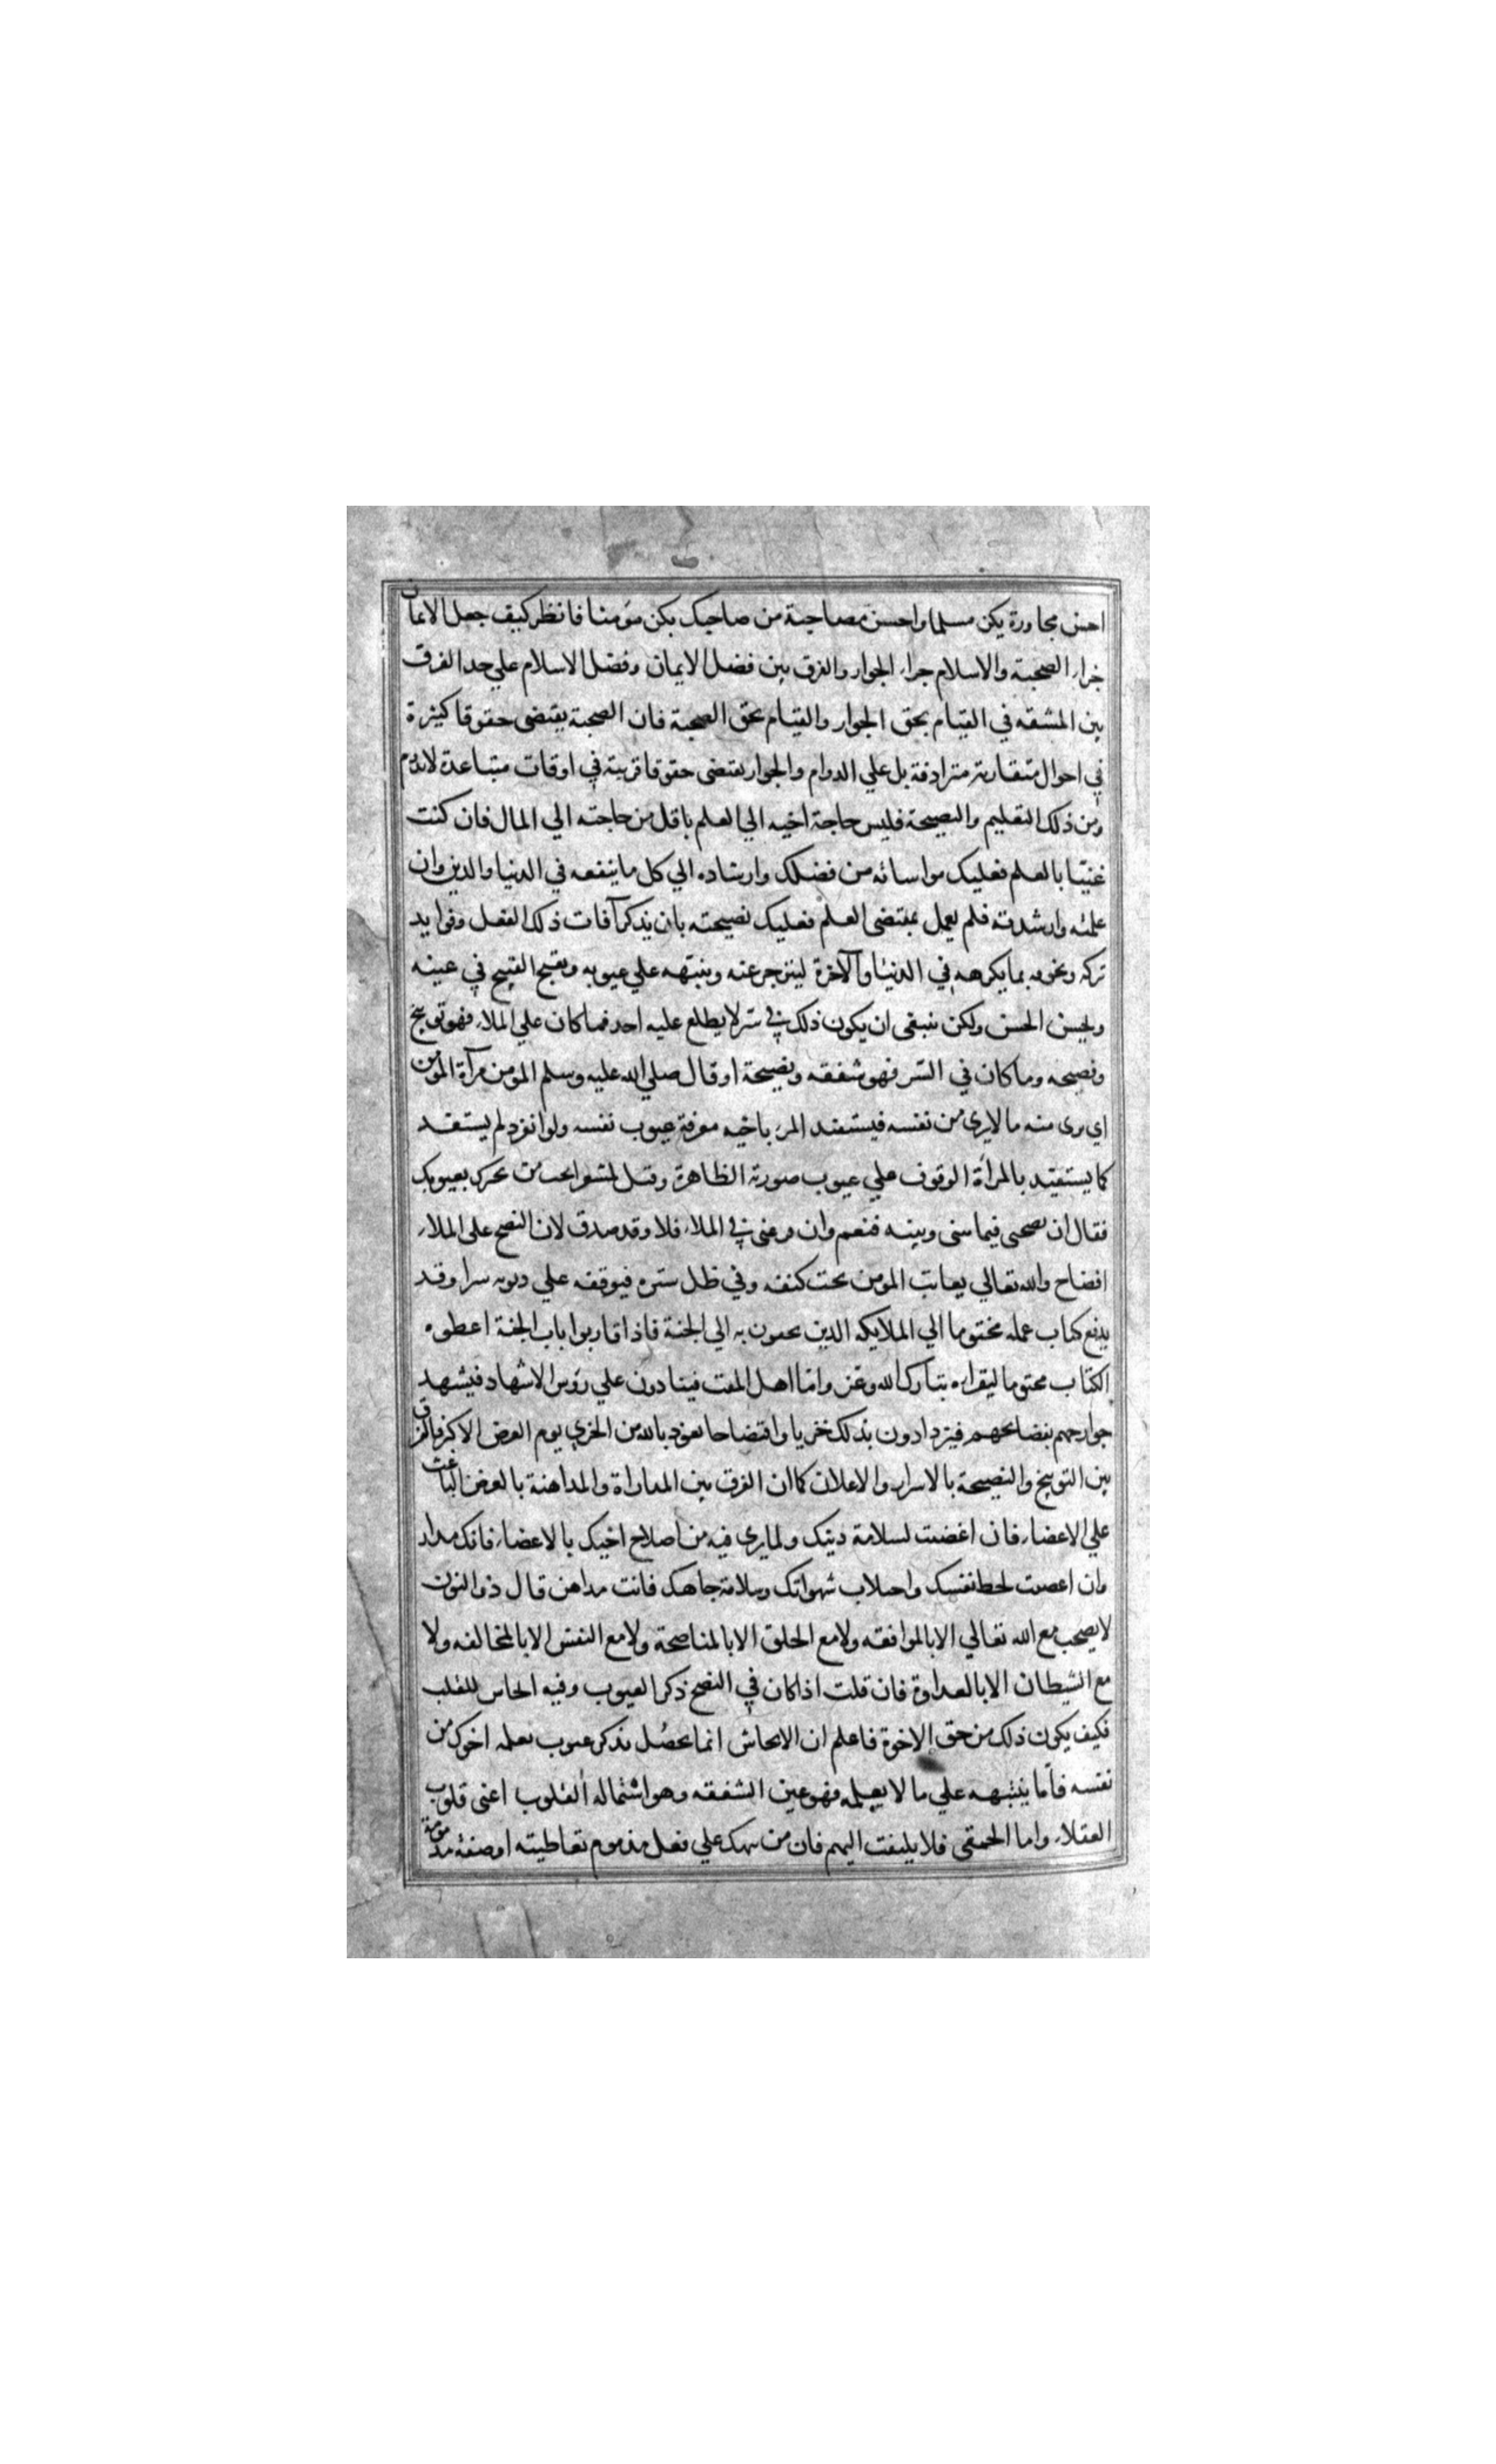 احسن مجاورة يكن مسلما واحسن مصاحبة من صاحبك يكن مؤمنا فانظر كيف جعل الايمان
جزاء الصحبة والاسلام جزاء الجوار والفرق بين فضل الايمان وفضل الاسلام علي حد الفرق
بين المشقه في القيام بحق الجوار والقيام بحق الصحبة فان الصحبة يقتضى حقوقا كثيرة
في احوال متقاربة مترادفة بل علي الدوام والجوار يقتضى حقوقا قريبة في اوقات متباعدة لاتدوم
ومن ذلك التعليم والنصيحة فليس حاجة اخيه الي العلم باقل من حاجته الي المال فان كنت
غنيا بالعلم فعليك مواساته من فضلك وارشاده الي كل ما ينفعه في الدنيا والدين وان
علمته وارشدته فلم يعمل بمقتضى العلم فعليك نصيحته بان يذكر آفات ذلك الفعل وفوايد
تركه ويخوفه بما يكرهه في الدنيا والآخرة لينزجر عنه وينبهه علي عيوبه ويقبح القبيح في عينه
ويحسن الحسن ولكن ينبغى ان يكون ذلك في سر لا يطلع عليه احد فما كان علي الملاء فهو توبيخ
وفضيحه وما كان في السّر فهو شفقه ونصيحة اوقال صلي الله عليه وسلم المومن مرآة المومن
اي يرى منه ما لايرى من نفسه فيستفيد المرء باخيه معرفة عيوب نفسه ولو انفرد لم يستفد
كما يستفيد بالمرأة الوقوف علي عيوب صورته الظاهرة وقيل لمسعر اتحب من يخبرك بعيوبك
فقال ان نصحنى فيما بينى وبينه فنعم وان قرعنى في الملاء فلا وقد صدق لان النصح على الملاء
افضاح والله تعالي يعاتب المومن تحت كنفه وفي ظل ستره فيوقفه علي ذنوبه سرا وقد
يدفع كتاب عمله مختوما الي الملايكه الذين يحفون به الي الجنة فاذا قاربوا باب الجنة اعطوه
الكتاب مختوما ليقراه تبارك الله وعز واما اهل المقت فينادون علي رؤس الاشهاد فيشهد
جوارحهم بفضائحهم فيزدادون بذلك خزيا وافتضاحا نعوذ بالله من الخزي يوم العرض الاكبر فالفرق
بين التوبيخ والنصيحة بالاسرار والاعلان كما ان الفرق بين المداراة والمداهنة بالغرض الباعث
علي الاعضاء فان اغضيت لسلامة دينك ولما يرى فيه من اصلاح اخيك بالاعضاء فانك مدار
وان اغضيت لحظ نفسك واجتلاب شهواتك وسلامة جاهك فانت مداهن قال ذو النون
لا يصحب مع الله تعالي الا بالموافقه ولا مع الخلق الا بالمناصحة ولا مع النفس الا بالمخالفه ولا
مع الشيطان الا بالعداوة فان قلت اذا كان في النصح ذكر العيوب وفيه ايحاش للقلب
فكيف يكون ذلك من حق الاخوة فاعلم ان الايحاش انما يحصل بذكر عيوب يعلمه اخوك من
نفسه فأما ينبهه علي ما لا يعلمه فهو عين الشفقه وهو استماله القلوب اعنى قلوب
العقلاء واما الحمقى فلا يلتفت اليهم فان من نبهك علي فعل مذموم تعاطيته او صفة مذمومة